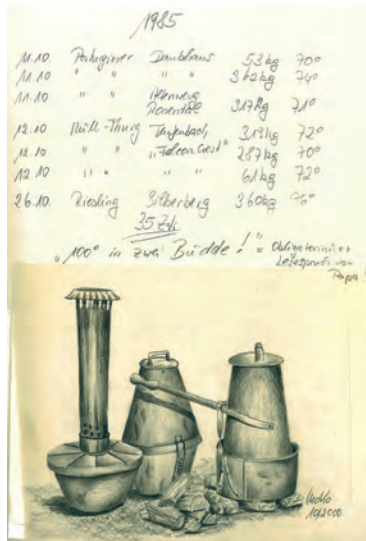 1985
11.10. Portugieser Daubhaus 53kg 70°
11.10 " " " " 362kg 74°
11.10 " "
Rosental 317kg 71°
12.10 Müll-Thurg 319kg 72°
12.10 " " "Falcon Crest" 287kg 70°
12.10 " " " " 61kg 72°
26.10. Riesling Silberberg 360kg 76°
35 Ztr
"100° in zwei Büdde!" = Obligatorischer
Lesespruch von
Papa!
10/2000